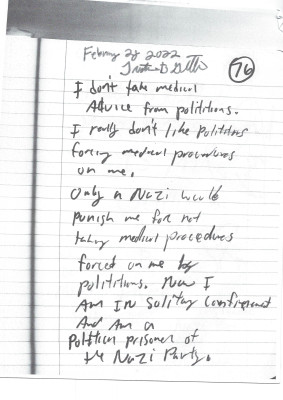 February 28 2022
76
I don't take medical
Advice from polititions.
I really don't like polititions
forcing medical procedures
on me.
Only a Nazi would
punish me for not
taking medical procedures
forced on me by
polititions. Now I
Am IN Solitary Confinement
And Am a
Political prisoner of
the Nazi Party.